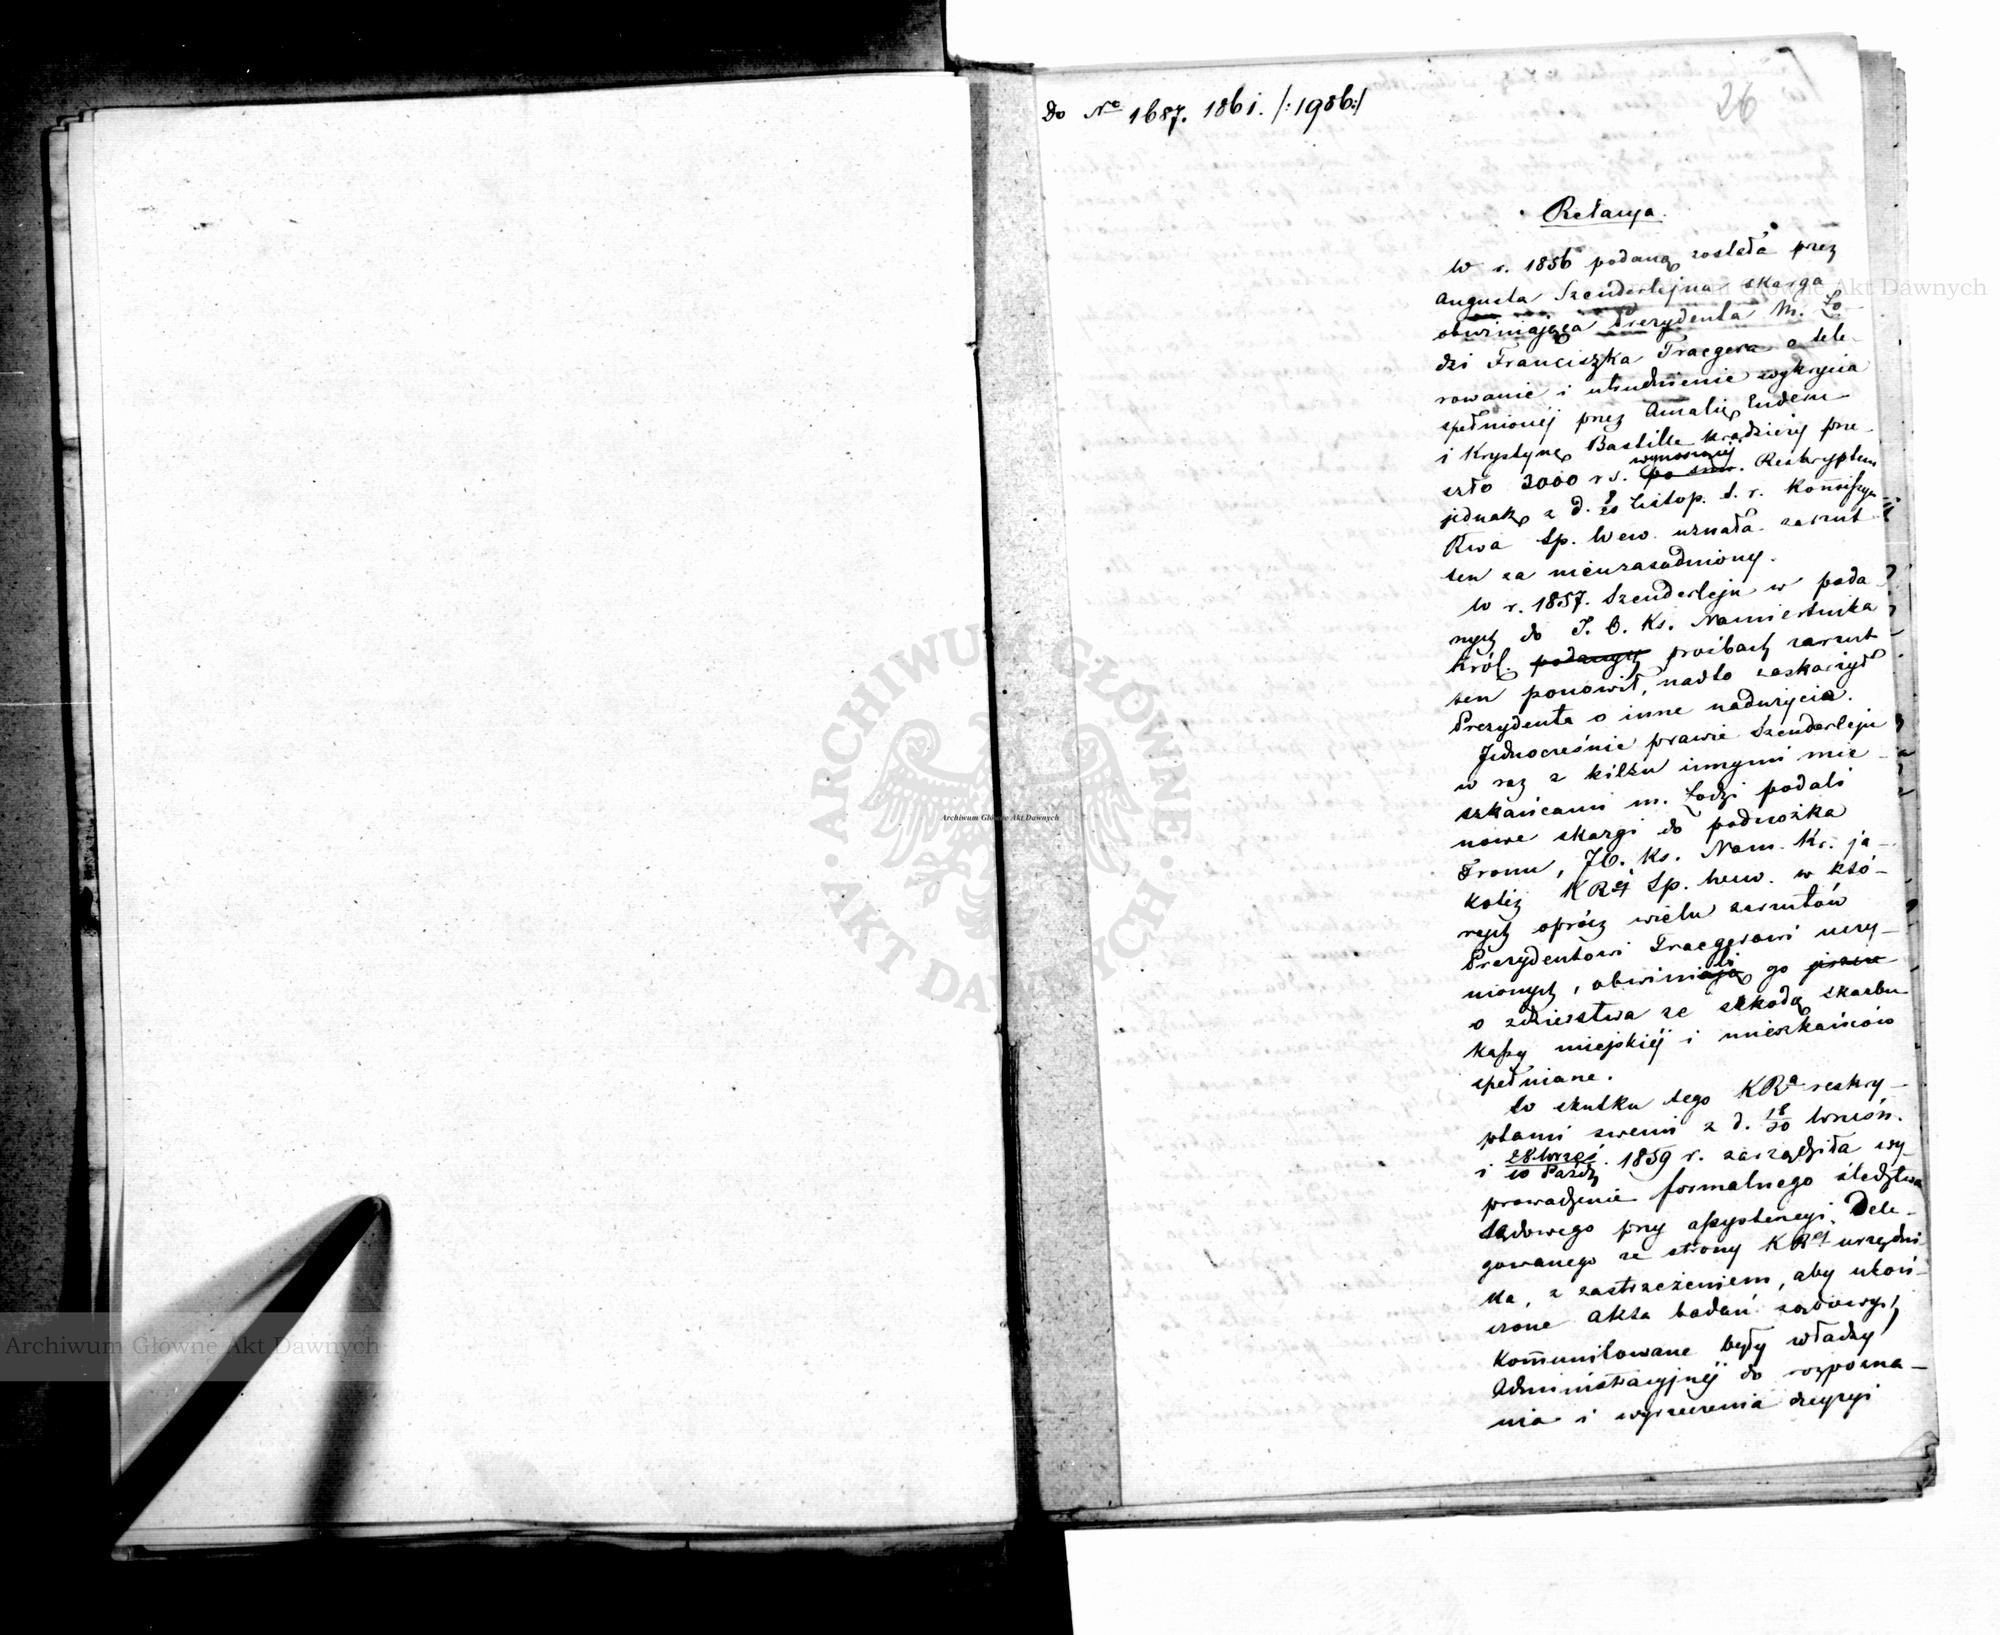 Do No 1687. 1861. /:1986:/
26
Relacya.
W r. 1856 podaną została przez
Augusta Szenderlejna skarga
obwiniająca Prezydenta M. Ło-
dzi Franciszka Traegera o tole-
rowanie i utrudnienie wykrycia
spełnionéj przez Amalię Endem
i Krystynę Bastille kradzieży prze-
szło 3000 rs. wynoszącéj. Reskryptem
jednak z d. 8/20 Listop. t. r. Kommissya
Rwa Sp. Wew. uznała zarzut
ten za nieuzasadniony.
W r. 1857. Szenderlejn w poda-
nych do J. O. Ks. Namiestnika
Król. podanych prośbach zarzut
ten ponowił, nadto zaskarżył
Prezydenta o inne nadużycia.
Jednocześnie prawie Szenderlejn
w raz z kilku innymi mie-
szkańcami m. Łodzi podali
nowe skargi do podnóżka
Tronu, JO. Ks. Nam. Kr. ja-
kotéż KRéj Sp. Wew. w któ-
rych oprócz wielu zarzutów
Prezydentowi Traegerowi uczy-
nionych, obwiniali go jeszcze
o zdzierstwa ze szkodą skarbu
kassy miejskiéj i mieszkańców
spełniane.
W skutku tego KRa reskry-
ptami swemi z d. 18/30 Wrześn.
i 28 Wrześ/10 Paźdz. 1859 r. zarządziła wy-
prowadzenie formalnego śledztwa
Sądowego przy assystencyi Dele-
gowanego ze strony KRéj urzędni-
ka, z zastrzeżeniem, aby ukoń-
czone Akta badań sądowych
kommunikowane były władzy
Administracyjnéj do rozpozna-
nia i wyrzeczenia decyzyi
Archiwum Główne Akt Dawnych
Archiwum Główne Akt Dawnych
Archiwum Główne Akt Dawnych
ARCHIWUM GŁÓWNE · AKT DAWNYCH ·